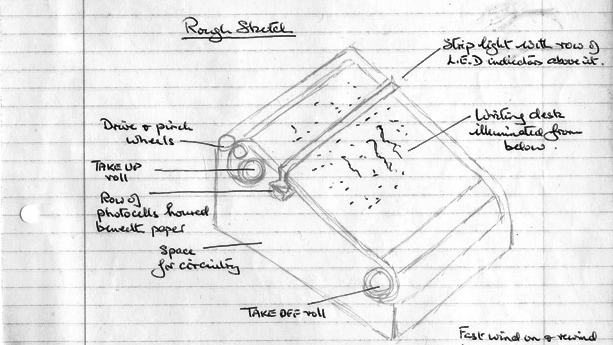 Rough Sketch
Strip light with row of
L.E.D indicators above it.
Drive & pinch
wheels
Writing desk
illuminated from
below.
TAKE UP
roll
Row of
photocells housed
beneath paper
Space
for circuitry
TAKE OFF roll
Fast wind on & rewind